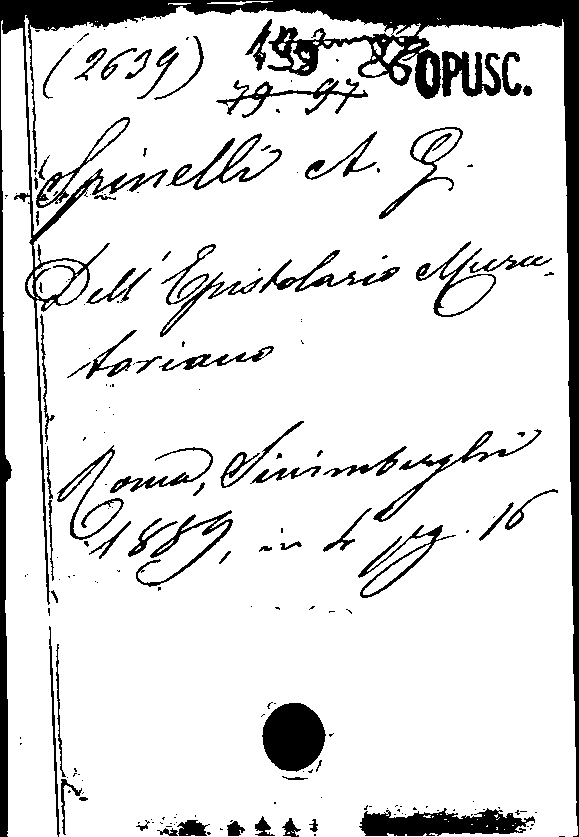 (2639) 139. 86 OPUSC.
79. 97
Spinelli A. G.
Dell' Epistolario Mura-
toriano
Roma, Sinimberghi
1889, in 4° pg. 16